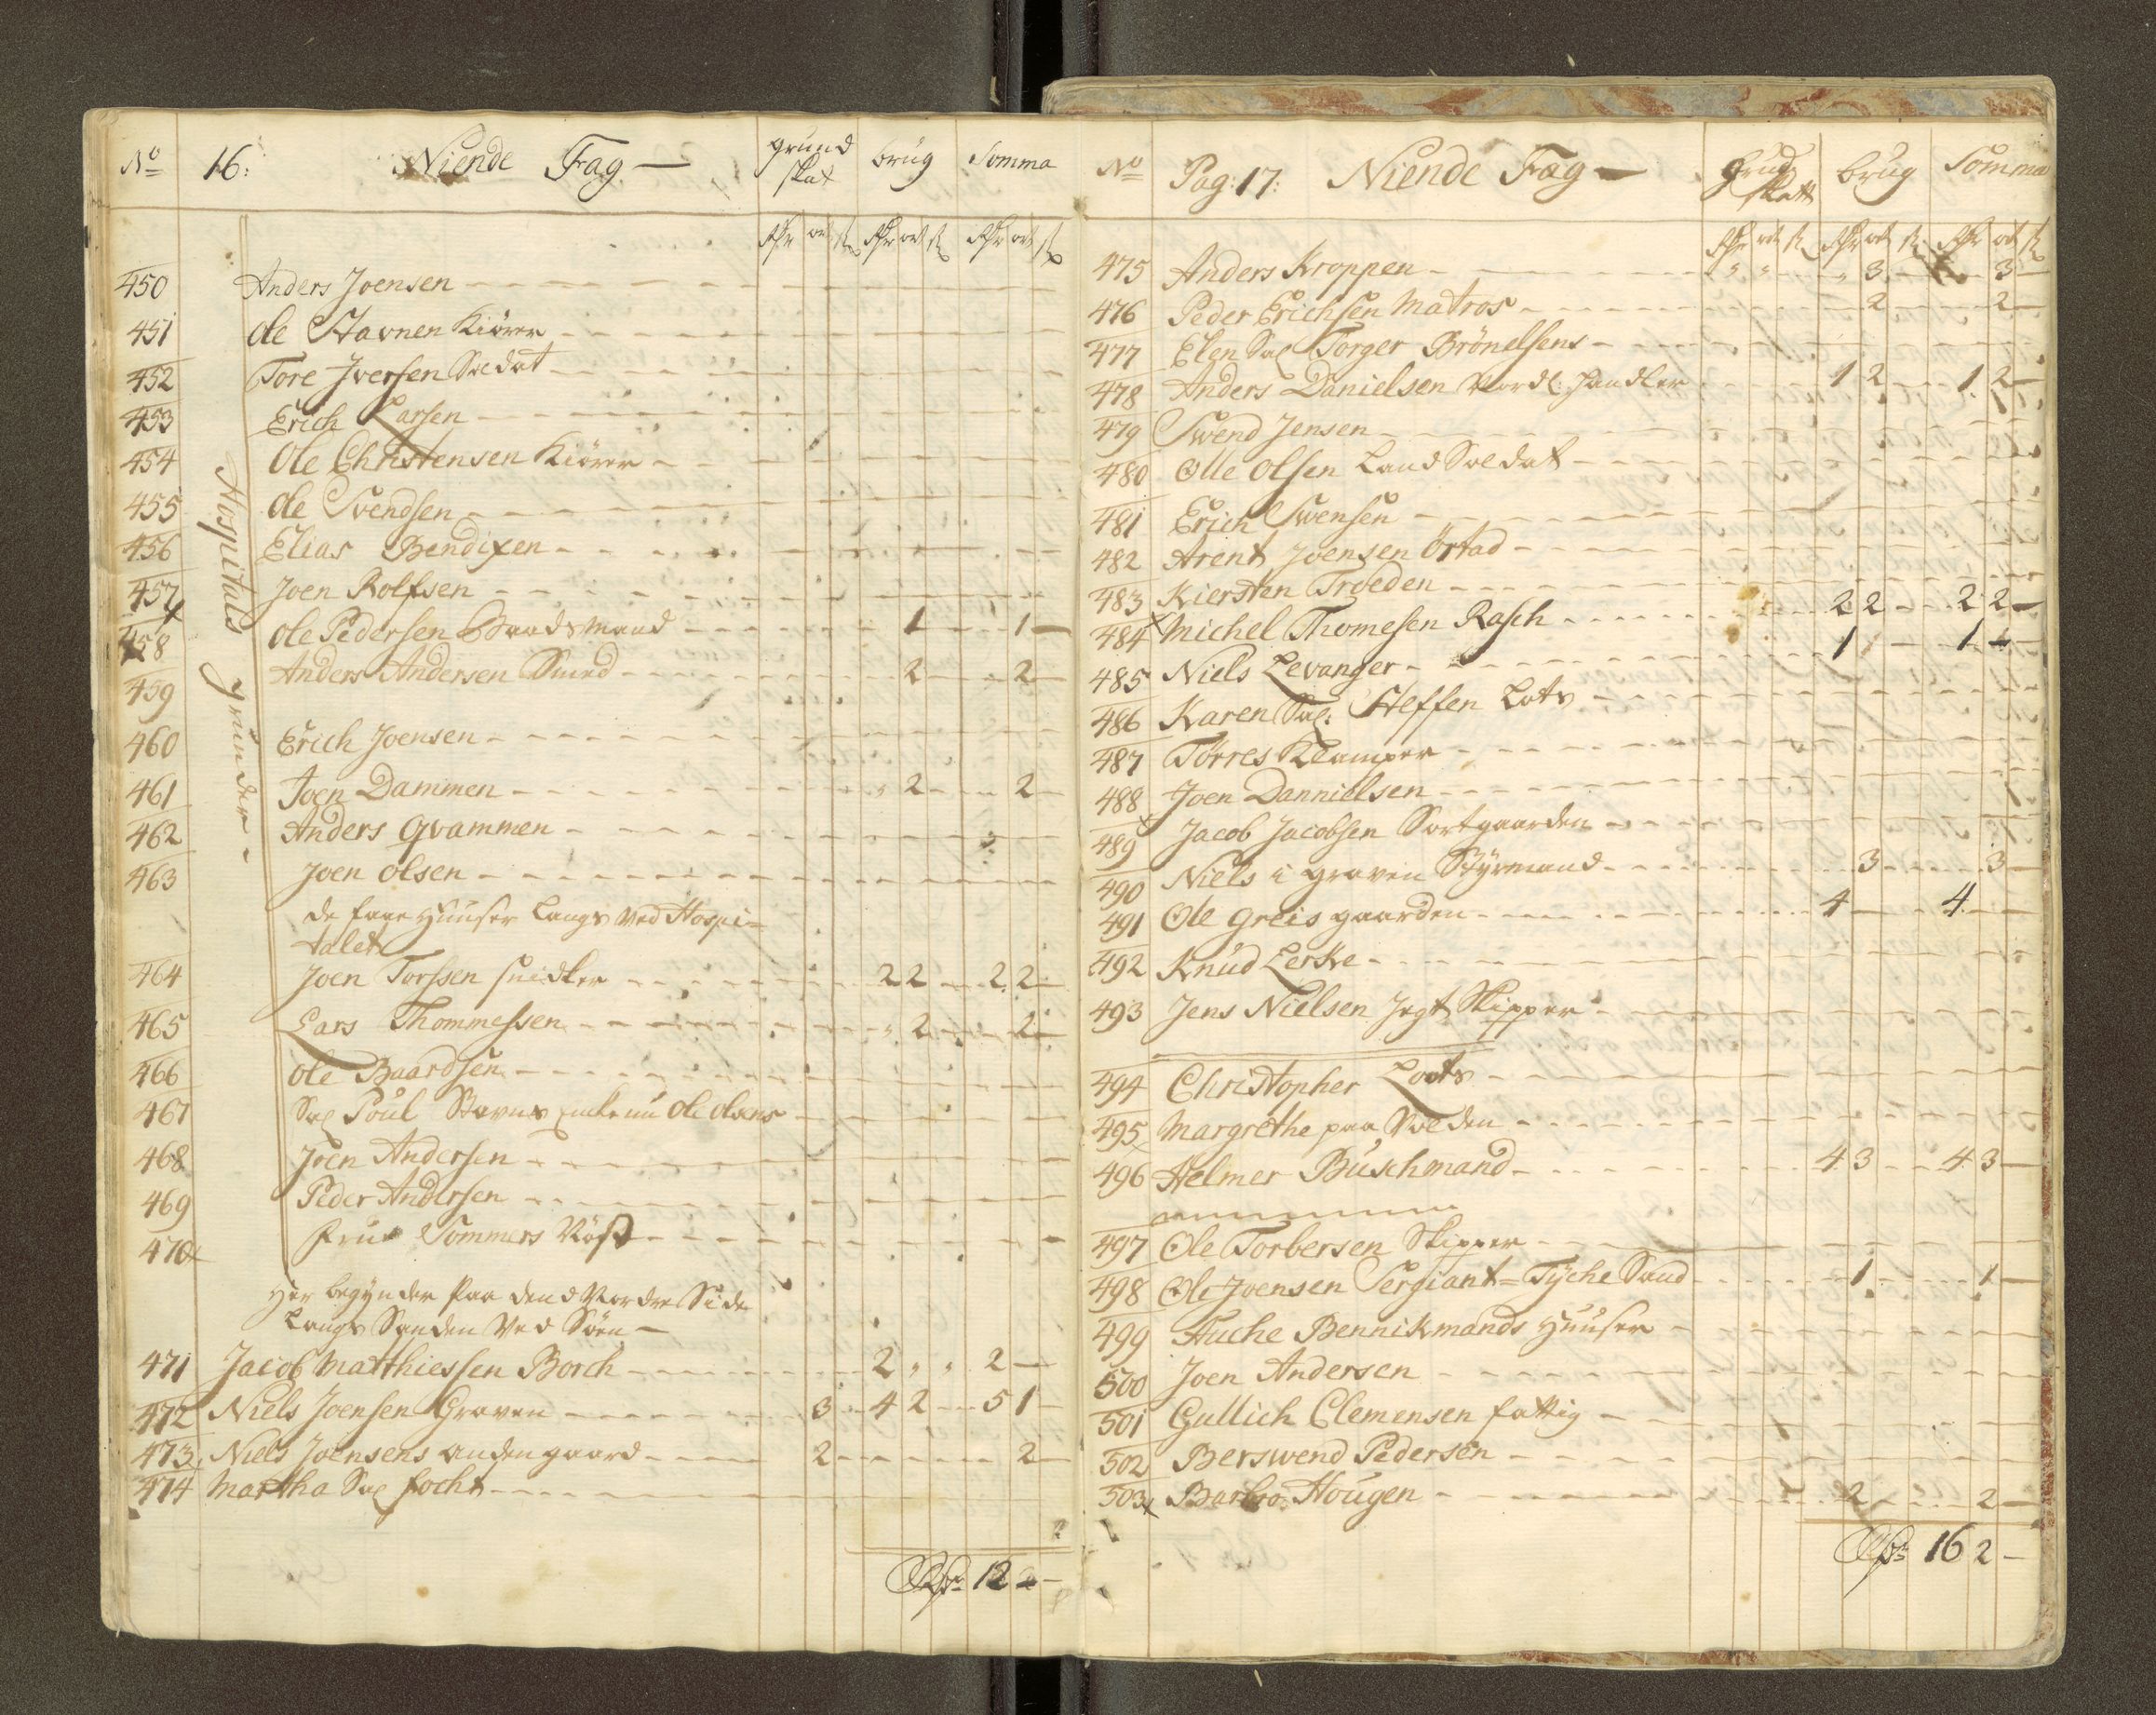 No 16: Niende Fag — grund skat brug Somma
Rdr ort s Rdr ort s Rdr ort s
Hospitals grunder
450 Anders Joensen
451 Ole Stavnen Kiörer
452 Tore Iversen Soldat
453 Erich Larsen
454 Ole Christensen Kiörer
455 Ole Svendsen
456 Elias Bendixen
457 Joen Rolfsen
458 Ole Pedersen Baadsmand 1 1
459 Anders Andersen Smed 2 2
460 Erich Joensen
461 Joen Dammen 2 2
462 Anders Qvammen
463 Joen Olsen
de faae Huuser langs ved Hospi=
talet
464 Joen Torssen snidker 2 2 2 2
465 Lars Thommessen 2 2
466 Ole Baardsen
467 Sal Poul Stavns Enke nu Ole Olsens
468 Joen Andersen
469 Peder Andersen
470 Frue Sommers
Her begynder Paa dend Nordre Side
Langs Sanden Ved Söen —
471 Jacob Matthiessen Borch 2 " " 2
472 Niels Joensen Graven 3 4 2 5 1
473 Niels Joensens anden gaard 2 2
474 Martha Sal focht
Rdr 12 2 —
No Pag: 17: Niende Fag — Grud skatt brug Somma
Rdr ort s Rdr ort s Rdr ort s
475 Anders Kroppen " " " 3 3
476 Peder Erichsen Matros 2 2
477 Elen Sal Torger Brönelsens
478 Anders Danielsen Nordl: Handler 1 2 1 2
479 Swend Jensen
480 Olle Olsen Land Soldat
481 Erich Swensen
482 Arent Joensen Örtad
483 Kiersten Troeden
484 Michel Thomesen Rasch 2 2 2 2
485 Niels Levanger 1 1 1 1
486 Karen Sal: Steffen Lots
487 Torres Klamper
488 Joen Dannielsen
489 Jacob Jacobsen Sortgaarden
490 Niels i graven Styrmand 3 3
491 Ole Greisgaarden 4 4
492 Knud Lerke
493 Jens Nielsen Jegt Skipper
494 Christopher Loots
495 Margrethe paa Volden
496 Helmer Buschmand 4 3 4 3
497 Ole Torbersen Skipper
498 Ole Joensen Sergiant = Tyche Sand 1 1
499 Tuche Bennikmands Huuser
500 Joen Andersen
501 Gullich Clemensen fattig
502 Berswend Pedersen
503 Barbro Hougen 2 2
Rdr 16 2 —